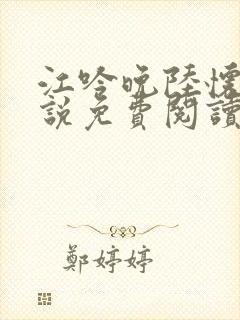 江吟晚陸懷
說免費閱讀
鄭婷婷